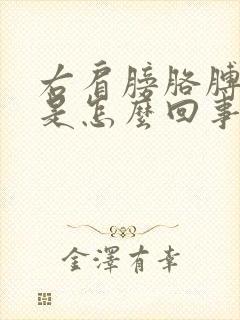 右肩膀胳膊
是怎麼回事
金澤有幸